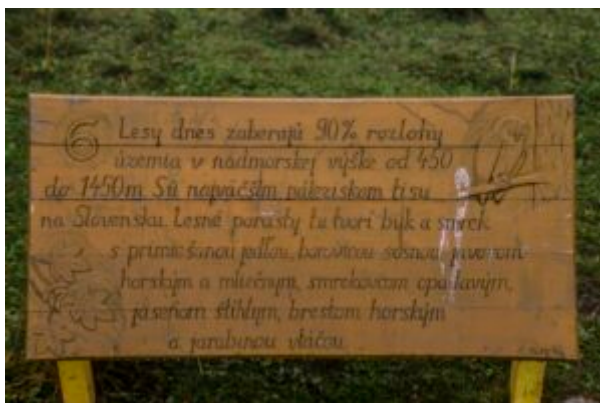 6
Lesy dnes zaberajú 90% rozlohy
územia v nadmorskej výške od 450
do 1450m. Sú najväčším náleziskom tisu
na Slovensku. Lesné porasty tu tvorí buk a smrek
s primiešanou jedľou, borovicou sosnou, javorom
horským a mliečnym, smrekovcom opadavým,
jaseňom štíhlym, brestom horským
a jarabinou vtáčou.